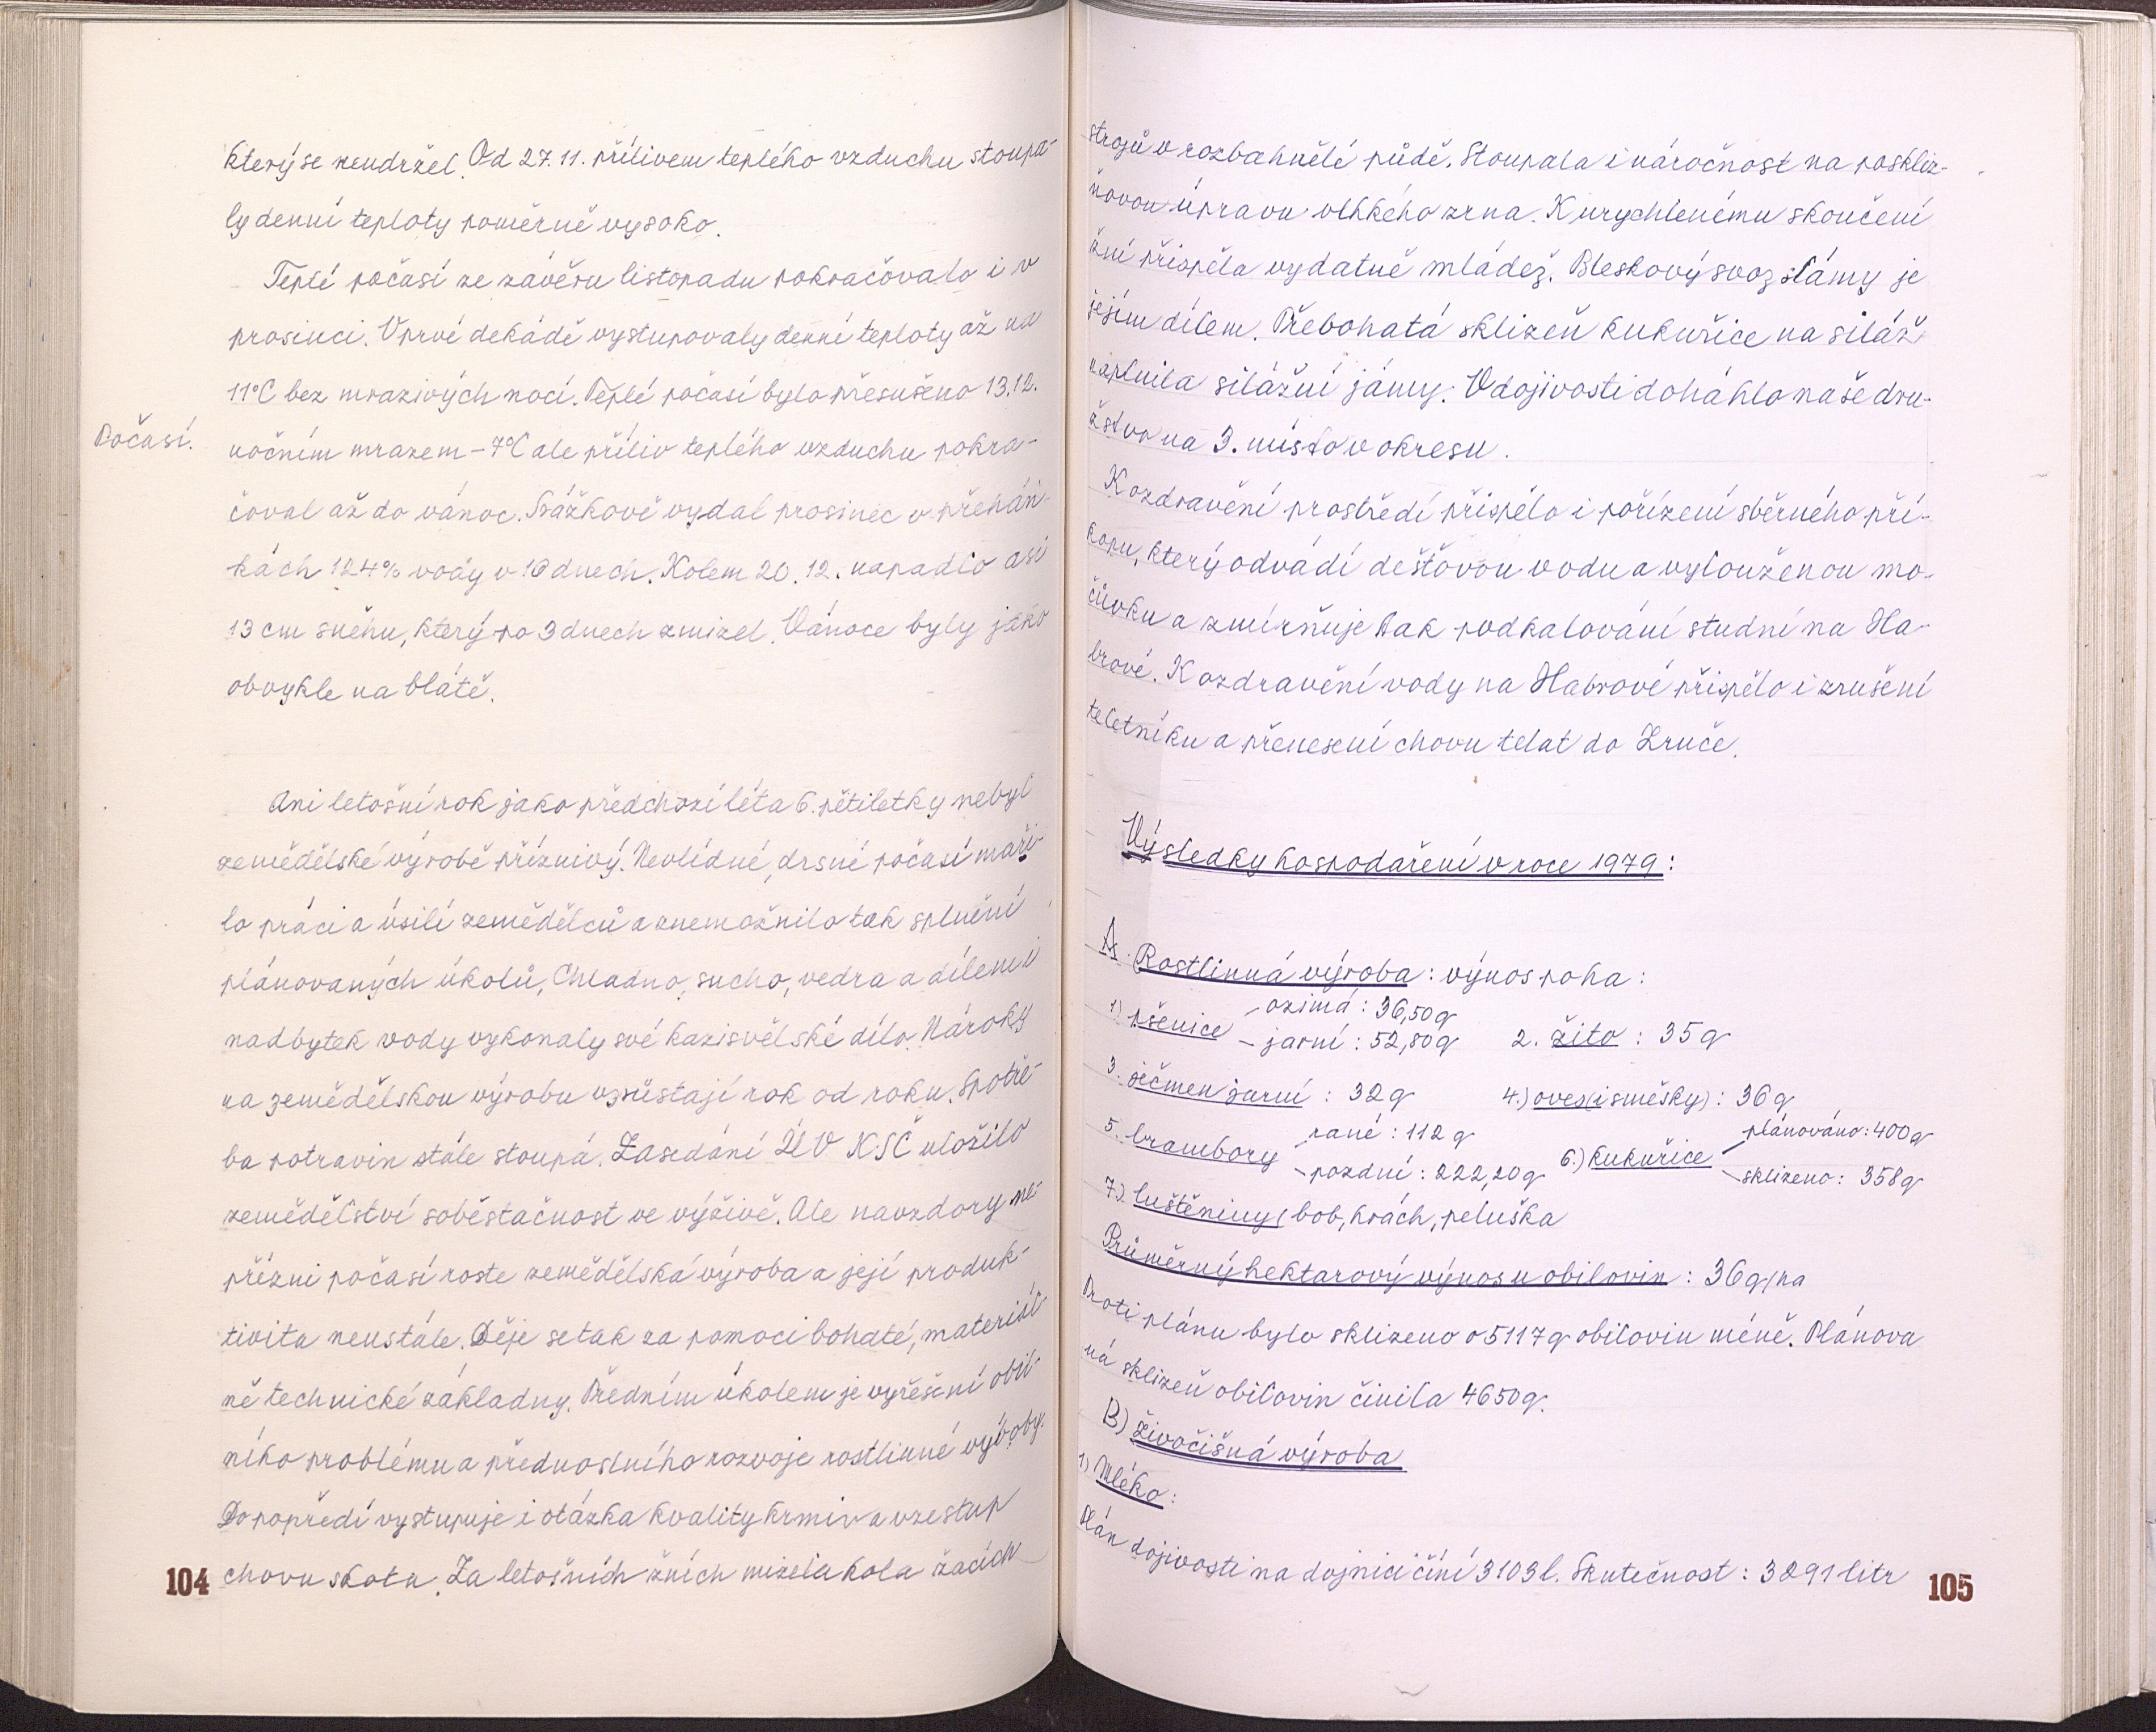 který se neudržel. Od 27.11. přílivem teplého vzduchu stoupa-
ly denní teploty poměrně vysoko.
Teplé počasí ze závěru listopadu pokračovalo i v
prosinci. V prvé dekádě vystupovaly denní teploty až na
11°C bez mrazivých nocí. Teplé počasí bylo přesušeno 13.12.
Počasí.
nočním mrazem -7°C ale příliv teplého vzduchu pokra-
čoval až do vánoc. Srážkově vydal prosinec v přeháň-
kách 124% vody v 13 dnech. Kolem 20.12. napadlo asi
13 cm sněhu, který po 3 dnech zmizel. Vánoce byly jako
obvykle na blátě.
Ani letošní rok jako předchozí léta 6. pětiletky nebyl
zemědělské výrobě příznivý. Nevlídné, drsné počasí maři-
lo práci a úsilí zemědělců a znemožnilo tak splnění
plánovaných úkolů. Chladno, sucho, vedra a dílem i
nadbytek vody vykonaly své kazisvětské dílo. Nároky
na zemědělskou výrobu vzrůstají rok od roku. Spotře-
ba potravin stále stoupá. Zasedání ÚV KSČ uložilo
zemědělství soběstačnost ve výživě. Ale navzdory ne-
přízni počasí roste zemědělská výroba a její produk-
tivita neustále. Děje se tak za pomoci bohaté, materiál-
ně technické základny. Předním úkolem je vyřešení obil-
ního problému a přednostního rozvoje rostlinné výroby.
Do popředí vystupuje i otázka kvality krmiv a vzestup
chovu skotu. Za letošních žních mizela kola žacích
104
strojů v rozbahnělé půdě. Stoupala i náročnost na poskliz-
ňovou úpravu vlhkého zrna. K urychlenému skončení
žní přispěla vydatně mládež. Bleskový svoz slámy je
jejím dílem. Přebohatá sklizeň kukuřice na siláž
naplnila silážní jámy. V dojivosti doháhlo naše dru-
žstvo na 3. místo v okresu.
K ozdravění prostředí přispělo i pořízení sběrného pří-
kopu, který odvádí dešťovou vodu a vylouženou mo-
čůvku a zmírňuje tak podkalování studní na Ha-
brové. K ozdravění vody na Habrové přispělo i zrušení
teletníku a přenesení chovu telat do Zruče.
Výsledky hospodaření v roce 1979:
A. Rostlinná výroba: výnos po ha:
1) pšenice - ozimá: 36,50q
- jarní: 52,80q 2. žito: 35q
3. ječmen jarní: 32q 4.) oves (i směšky): 36q
5. brambory - rané: 112q 6.) kukuřice - plánováno: 400q
- pozdní: 222,20q - sklizeno: 358q
7.) luštěniny (bob, hrách, peluška
Průměrný hektarový výnos u obilovin: 36q/ha
Proti plánu bylo sklizeno o 5117q obilovin méně. Plánova
ná sklizeň obilovin činila 4650q.
B) živočišná výroba
1) Mléko:
Plán dojivosti na dojnici činí 3103 l. Skutečnost: 3291 litr
105